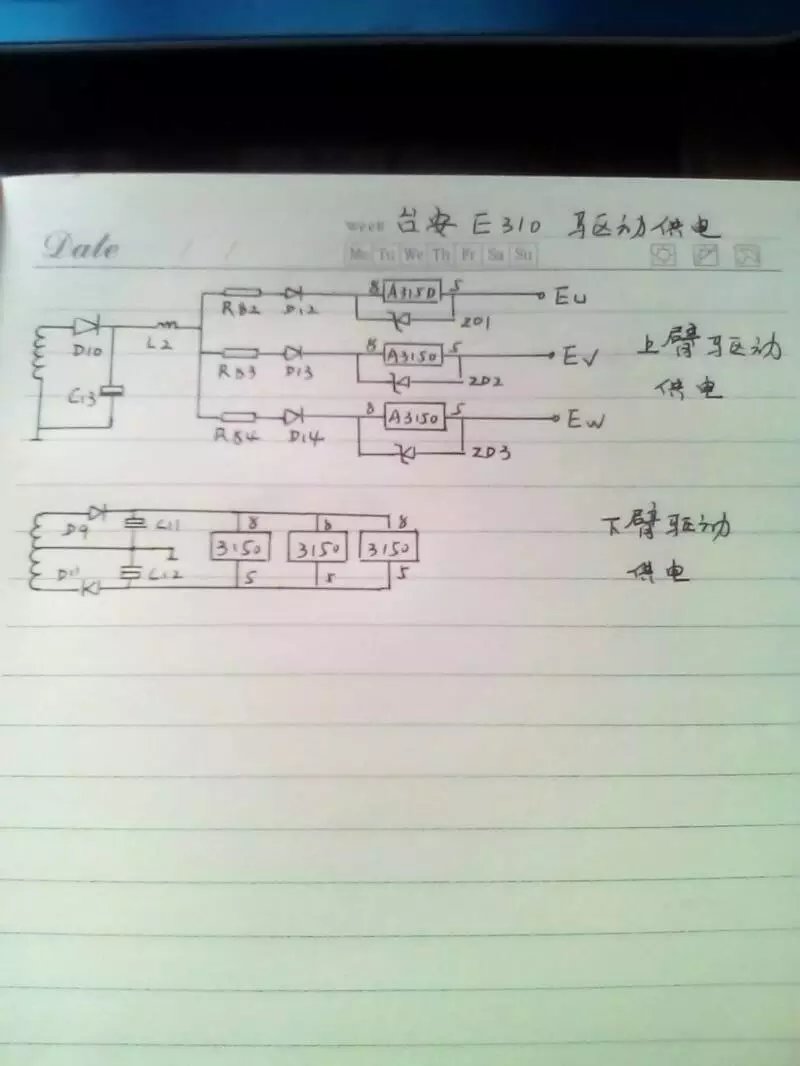 Date / / Week 台安 E310 驱动供电
Mo Tu We Th Fr Sa Su
8 A3150 5 Eu
R82 D12 ZD1
D10 L2 8 A3150 5 Ev 上臂驱动
R83 D13 ZD2 供电
C13 8 A3150 5 Ew
R84 D14 ZD3
D9 C11 8 8 8 下臂驱动
3150 3150 3150
D11 C12 5 5 5 供电